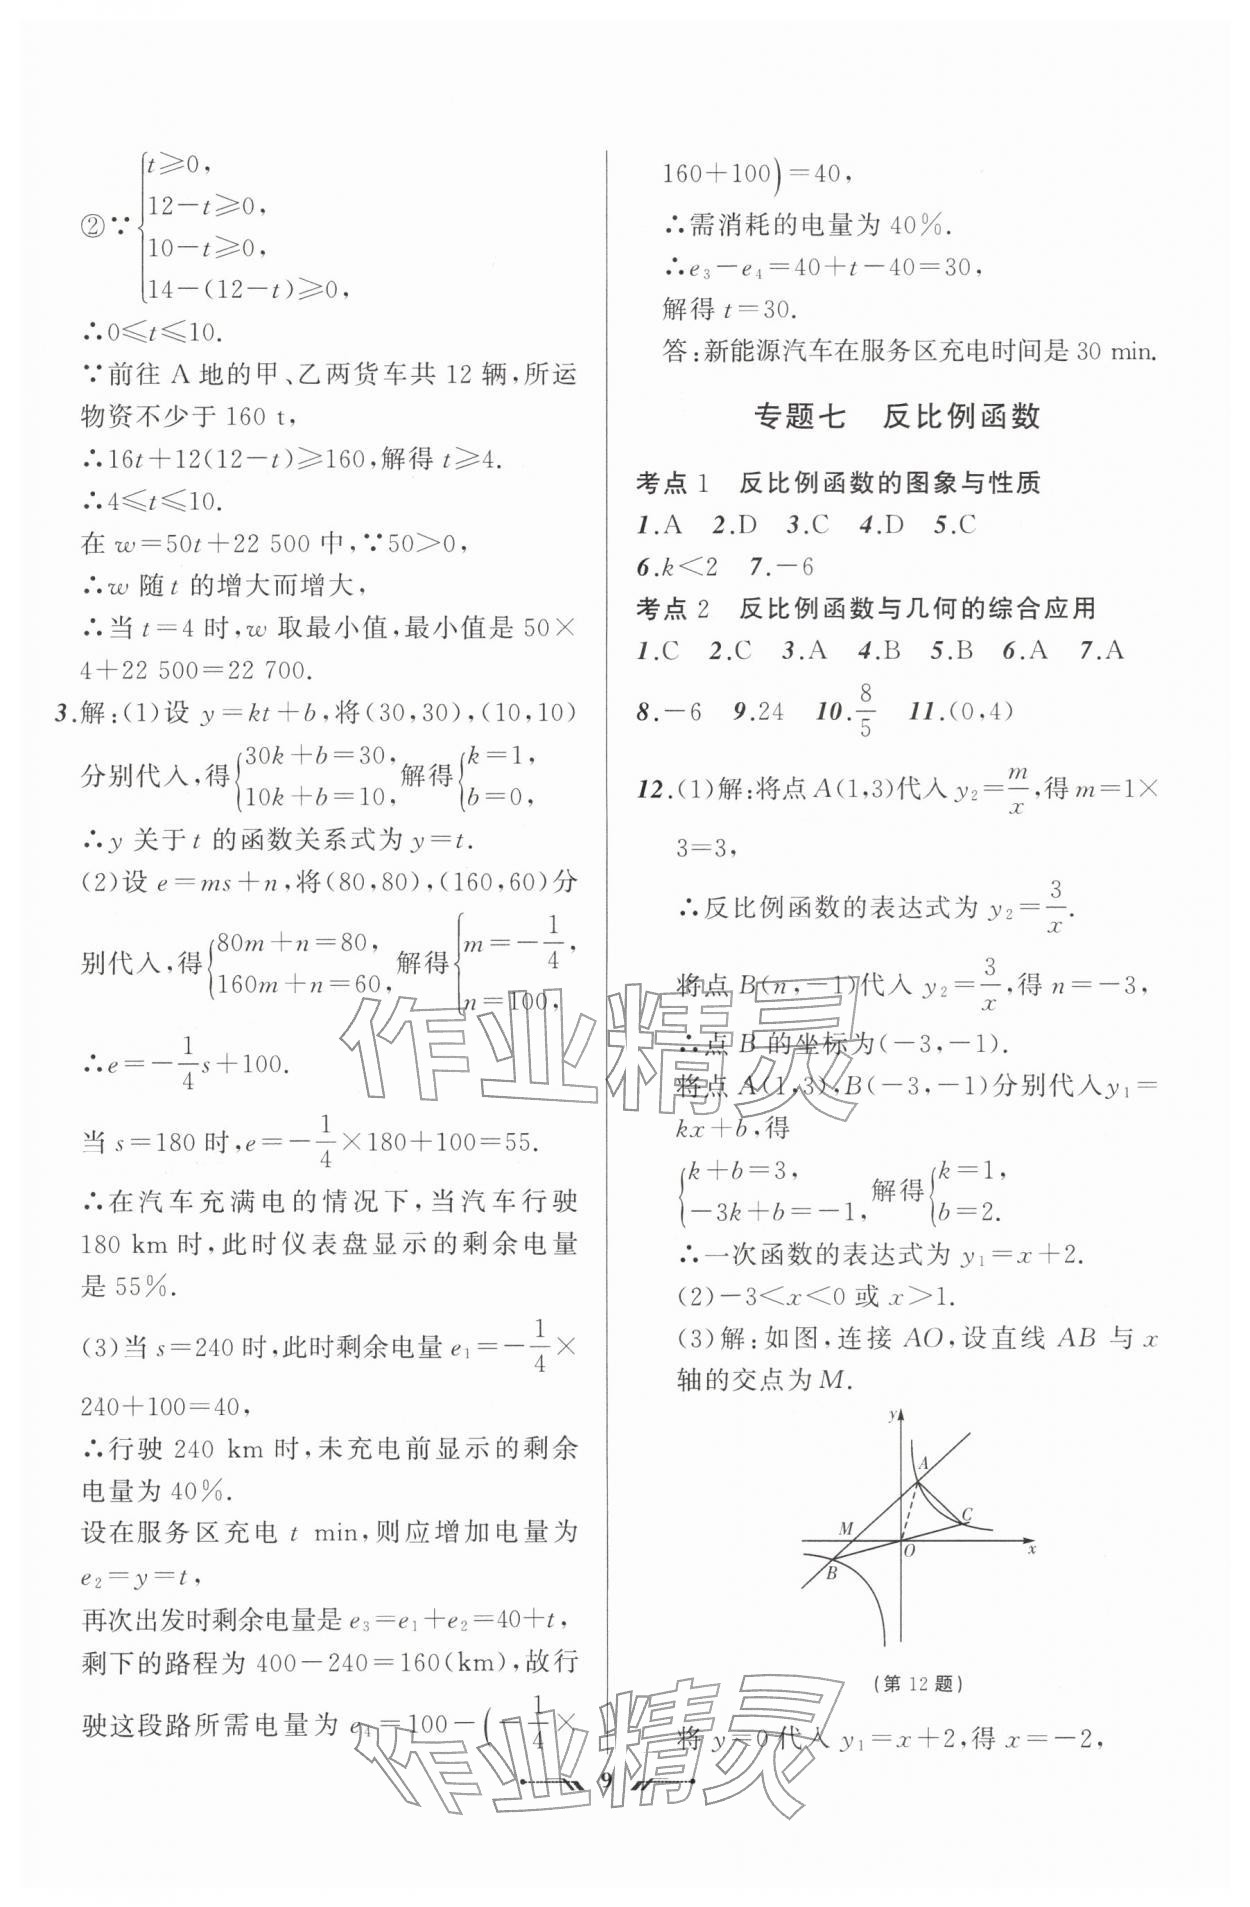 ②∵{t≥0,
12−t≥0,
10−t≥0,
14−(12−t)≥0,
∴0≤t≤10.
∵前往 A 地的甲、乙两货车共 12 辆,所运
物资不少于 160 t,
∴16t+12(12−t)≥160,解得 t≥4.
∴4≤t≤10.
在 w=50t+22 500 中,∵50>0,
∴w 随 t 的增大而增大,
∴当 t=4 时,w 取最小值,最小值是 50×
4+22 500=22 700.
3.解:(1)设 y=kt+b,将(30,30),(10,10)
分别代入,得{30k+b=30, 10k+b=10, 解得{k=1, b=0,
∴y 关于 t 的函数关系式为 y=t.
(2)设 e=ms+n,将(80,80),(160,60)分
别代入,得{80m+n=80, 160m+n=60, 解得{m=−1/4, n=100,
∴e=−1/4 s+100.
当 s=180 时,e=−1/4×180+100=55.
∴在汽车充满电的情况下,当汽车行驶
180 km 时,此时仪表盘显示的剩余电量
是 55%.
(3)当 s=240 时,此时剩余电量 e₁=−1/4×
240+100=40,
∴行驶 240 km 时,未充电前显示的剩余
电量为 40%.
设在服务区充电 t min,则应增加电量为
e₂=y=t,
再次出发时剩余电量是 e₃=e₁+e₂=40+t,
剩下的路程为 400−240=160(km),故行
驶这段路所需电量为 e₄=100−(−1/4×
160+100)=40,
∴需消耗的电量为 40%.
∴e₃−e₄=40+t−40=30,
解得 t=30.
答:新能源汽车在服务区充电时间是 30 min.
专题七 反比例函数
考点 1 反比例函数的图象与性质
1.A 2.D 3.C 4.D 5.C
6.k<2 7.−6
考点 2 反比例函数与几何的综合应用
1.C 2.C 3.A 4.B 5.B 6.A 7.A
8.−6 9.24 10.8/5 11.(0,4)
12.(1)解:将点 A(1,3)代入 y₂=m/x,得 m=1×
3=3,
∴反比例函数的表达式为 y₂=3/x.
将点 B(n,−1)代入 y₂=3/x,得 n=−3,
∴点 B 的坐标为(−3,−1).
将点 A(1,3),B(−3,−1)分别代入y₁=
kx+b,得
{k+b=3, −3k+b=−1, 解得{k=1, b=2.
∴一次函数的表达式为 y₁=x+2.
(2)−3<x<0 或 x>1.
(3)解:如图,连接 AO,设直线 AB 与 x
轴的交点为 M.
y
A
C
M
O
x
B
(第 12 题)
将 y=0 代入 y₁=x+2,得 x=−2,
9
作业精灵
作业精灵